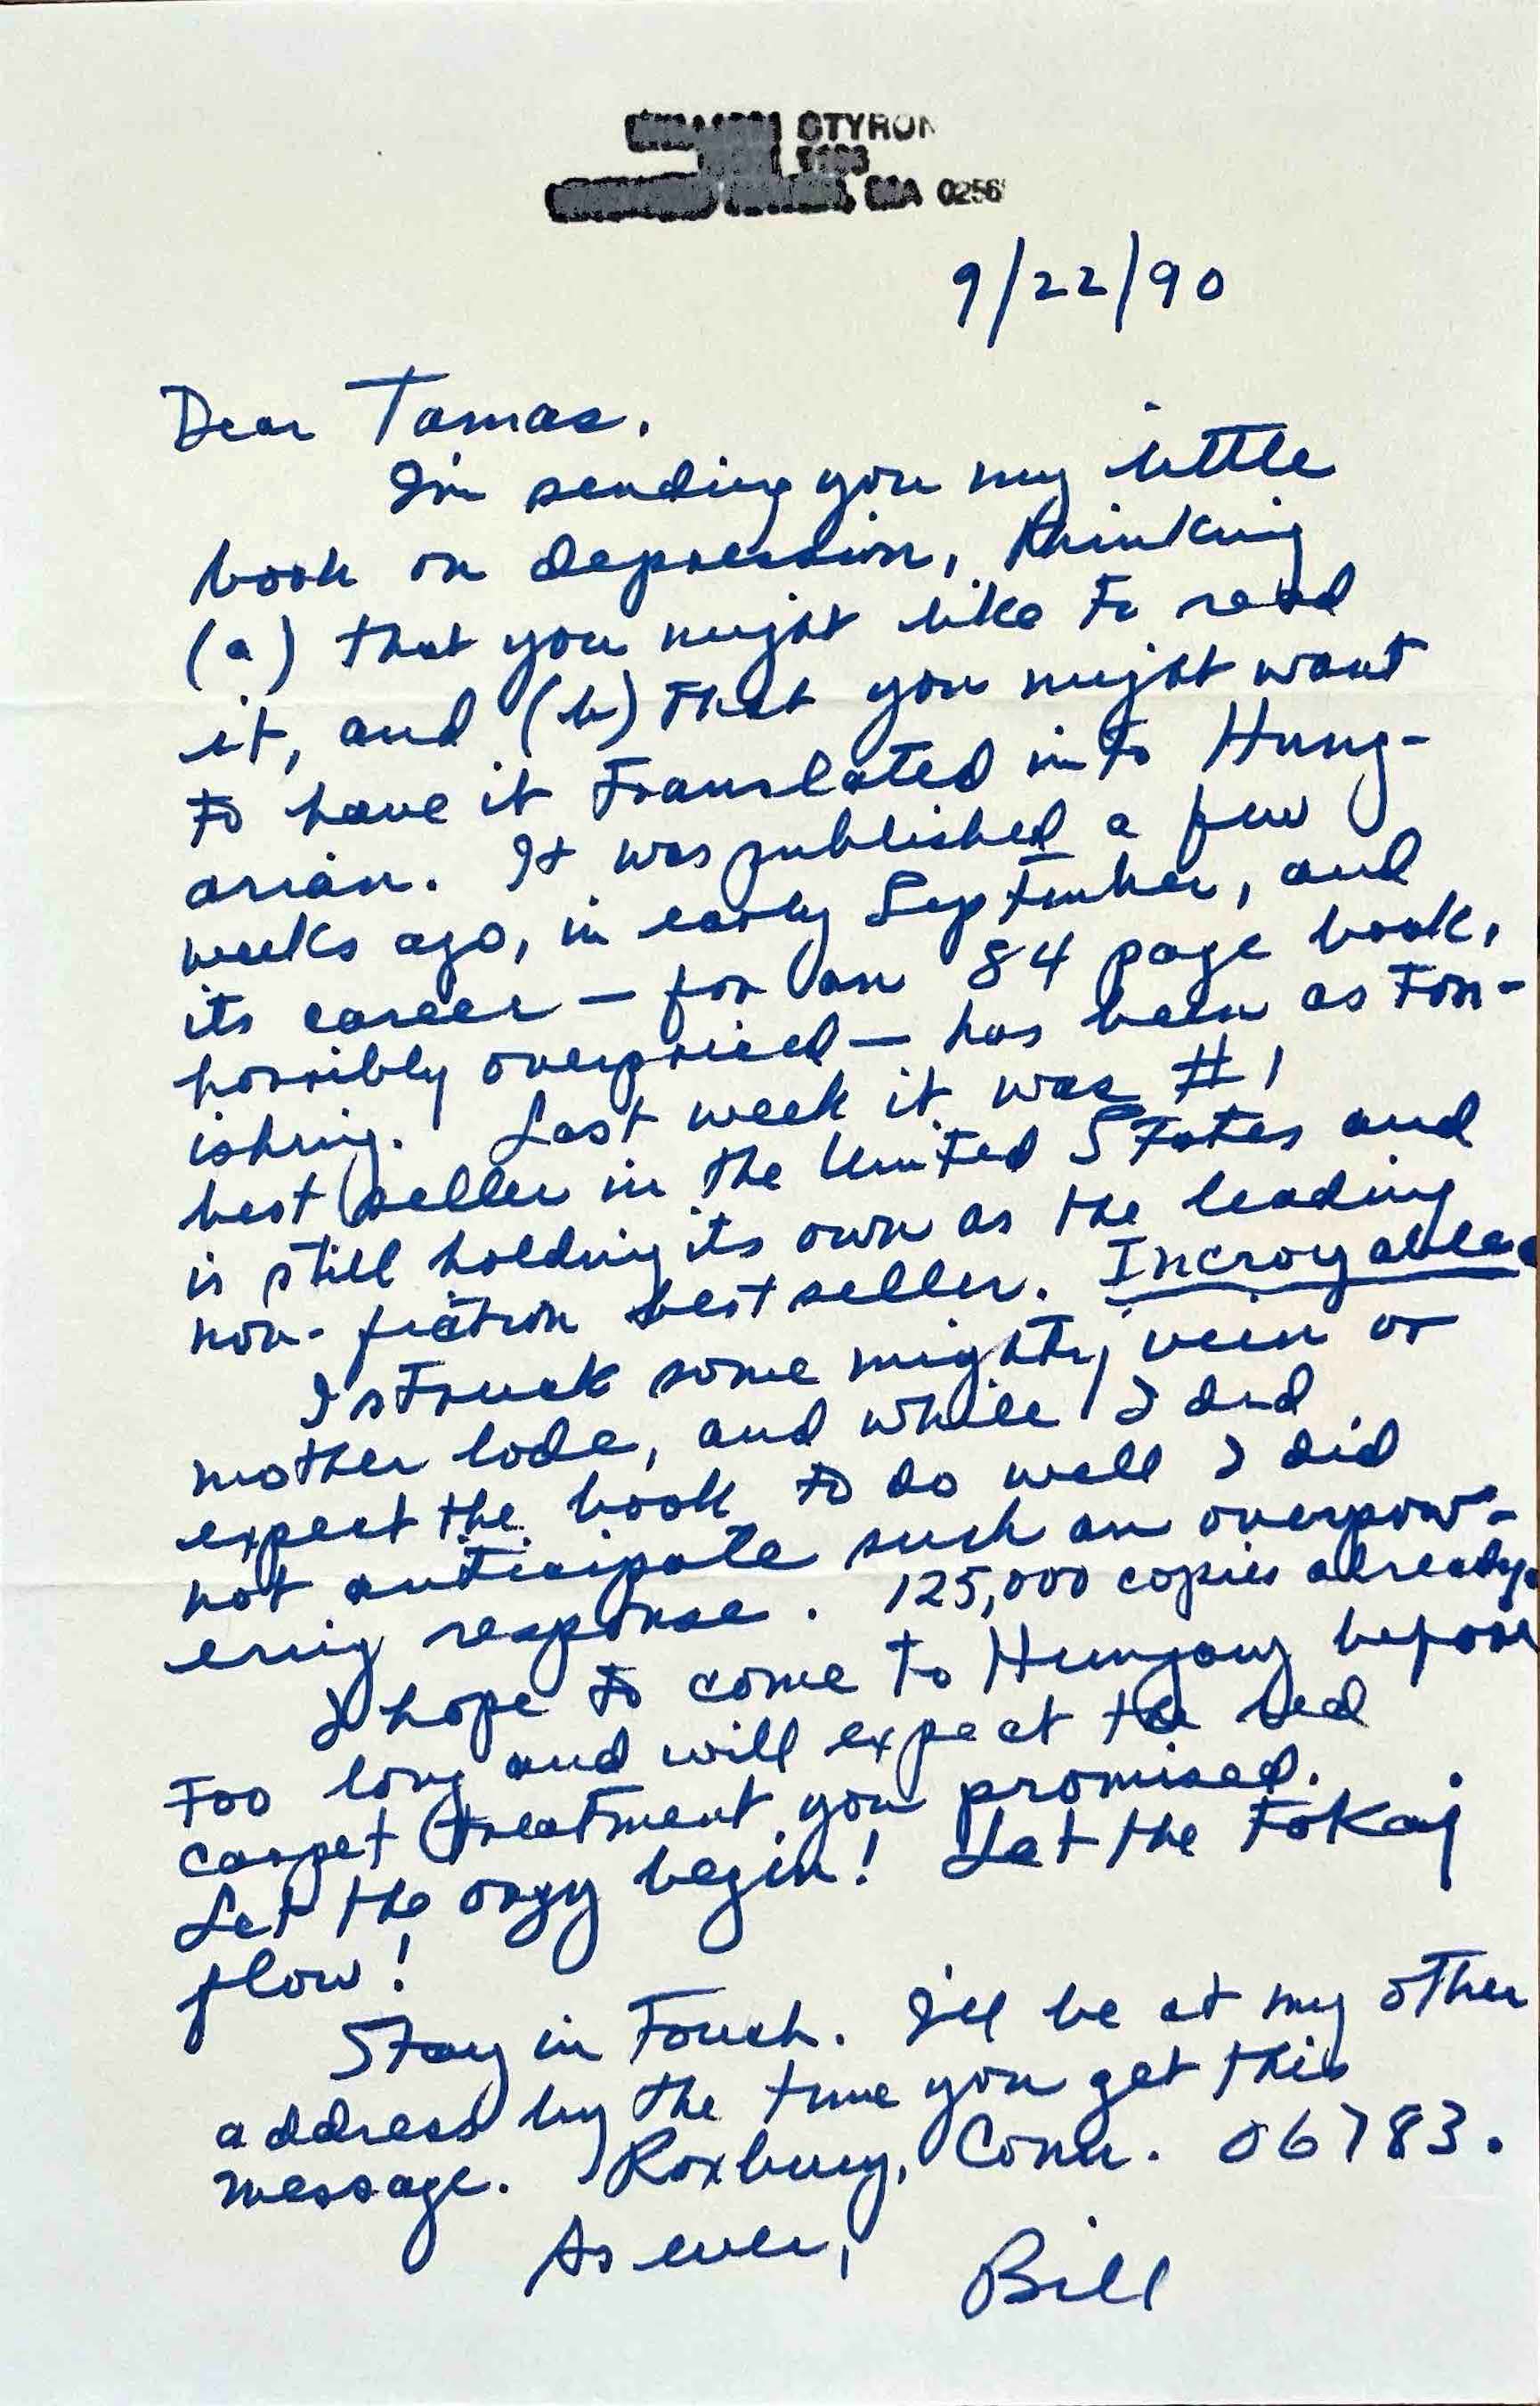 STYRON
MA 0256
9/22/90
Dear Tamas,
I'm sending you my little
book on depression, thinking
(a) that you might like to read
it, and (b) that you might want
to have it translated into Hung-
arian. It was published a few
weeks ago, in early September, and
its career — for an 84 page book,
horribly overpriced — has been aston-
ishing. Last week it was #1
best seller in the United States and
is still holding its own as the leading
non-fiction best seller. Incroyable.
I struck some mighty vein or
mother lode, and while I did
expect the book to do well I did
not anticipate such an overpow-
ering response. 125,000 copies already.
I hope to come to Hungary before
too long and will expect the red
carpet treatment you promised.
Let the orgy begin! Let the Tokaj
flow!
Stay in touch. I'll be at my other
address by the time you get this
message. Roxbury, Conn. 06783.
As ever,
Bill